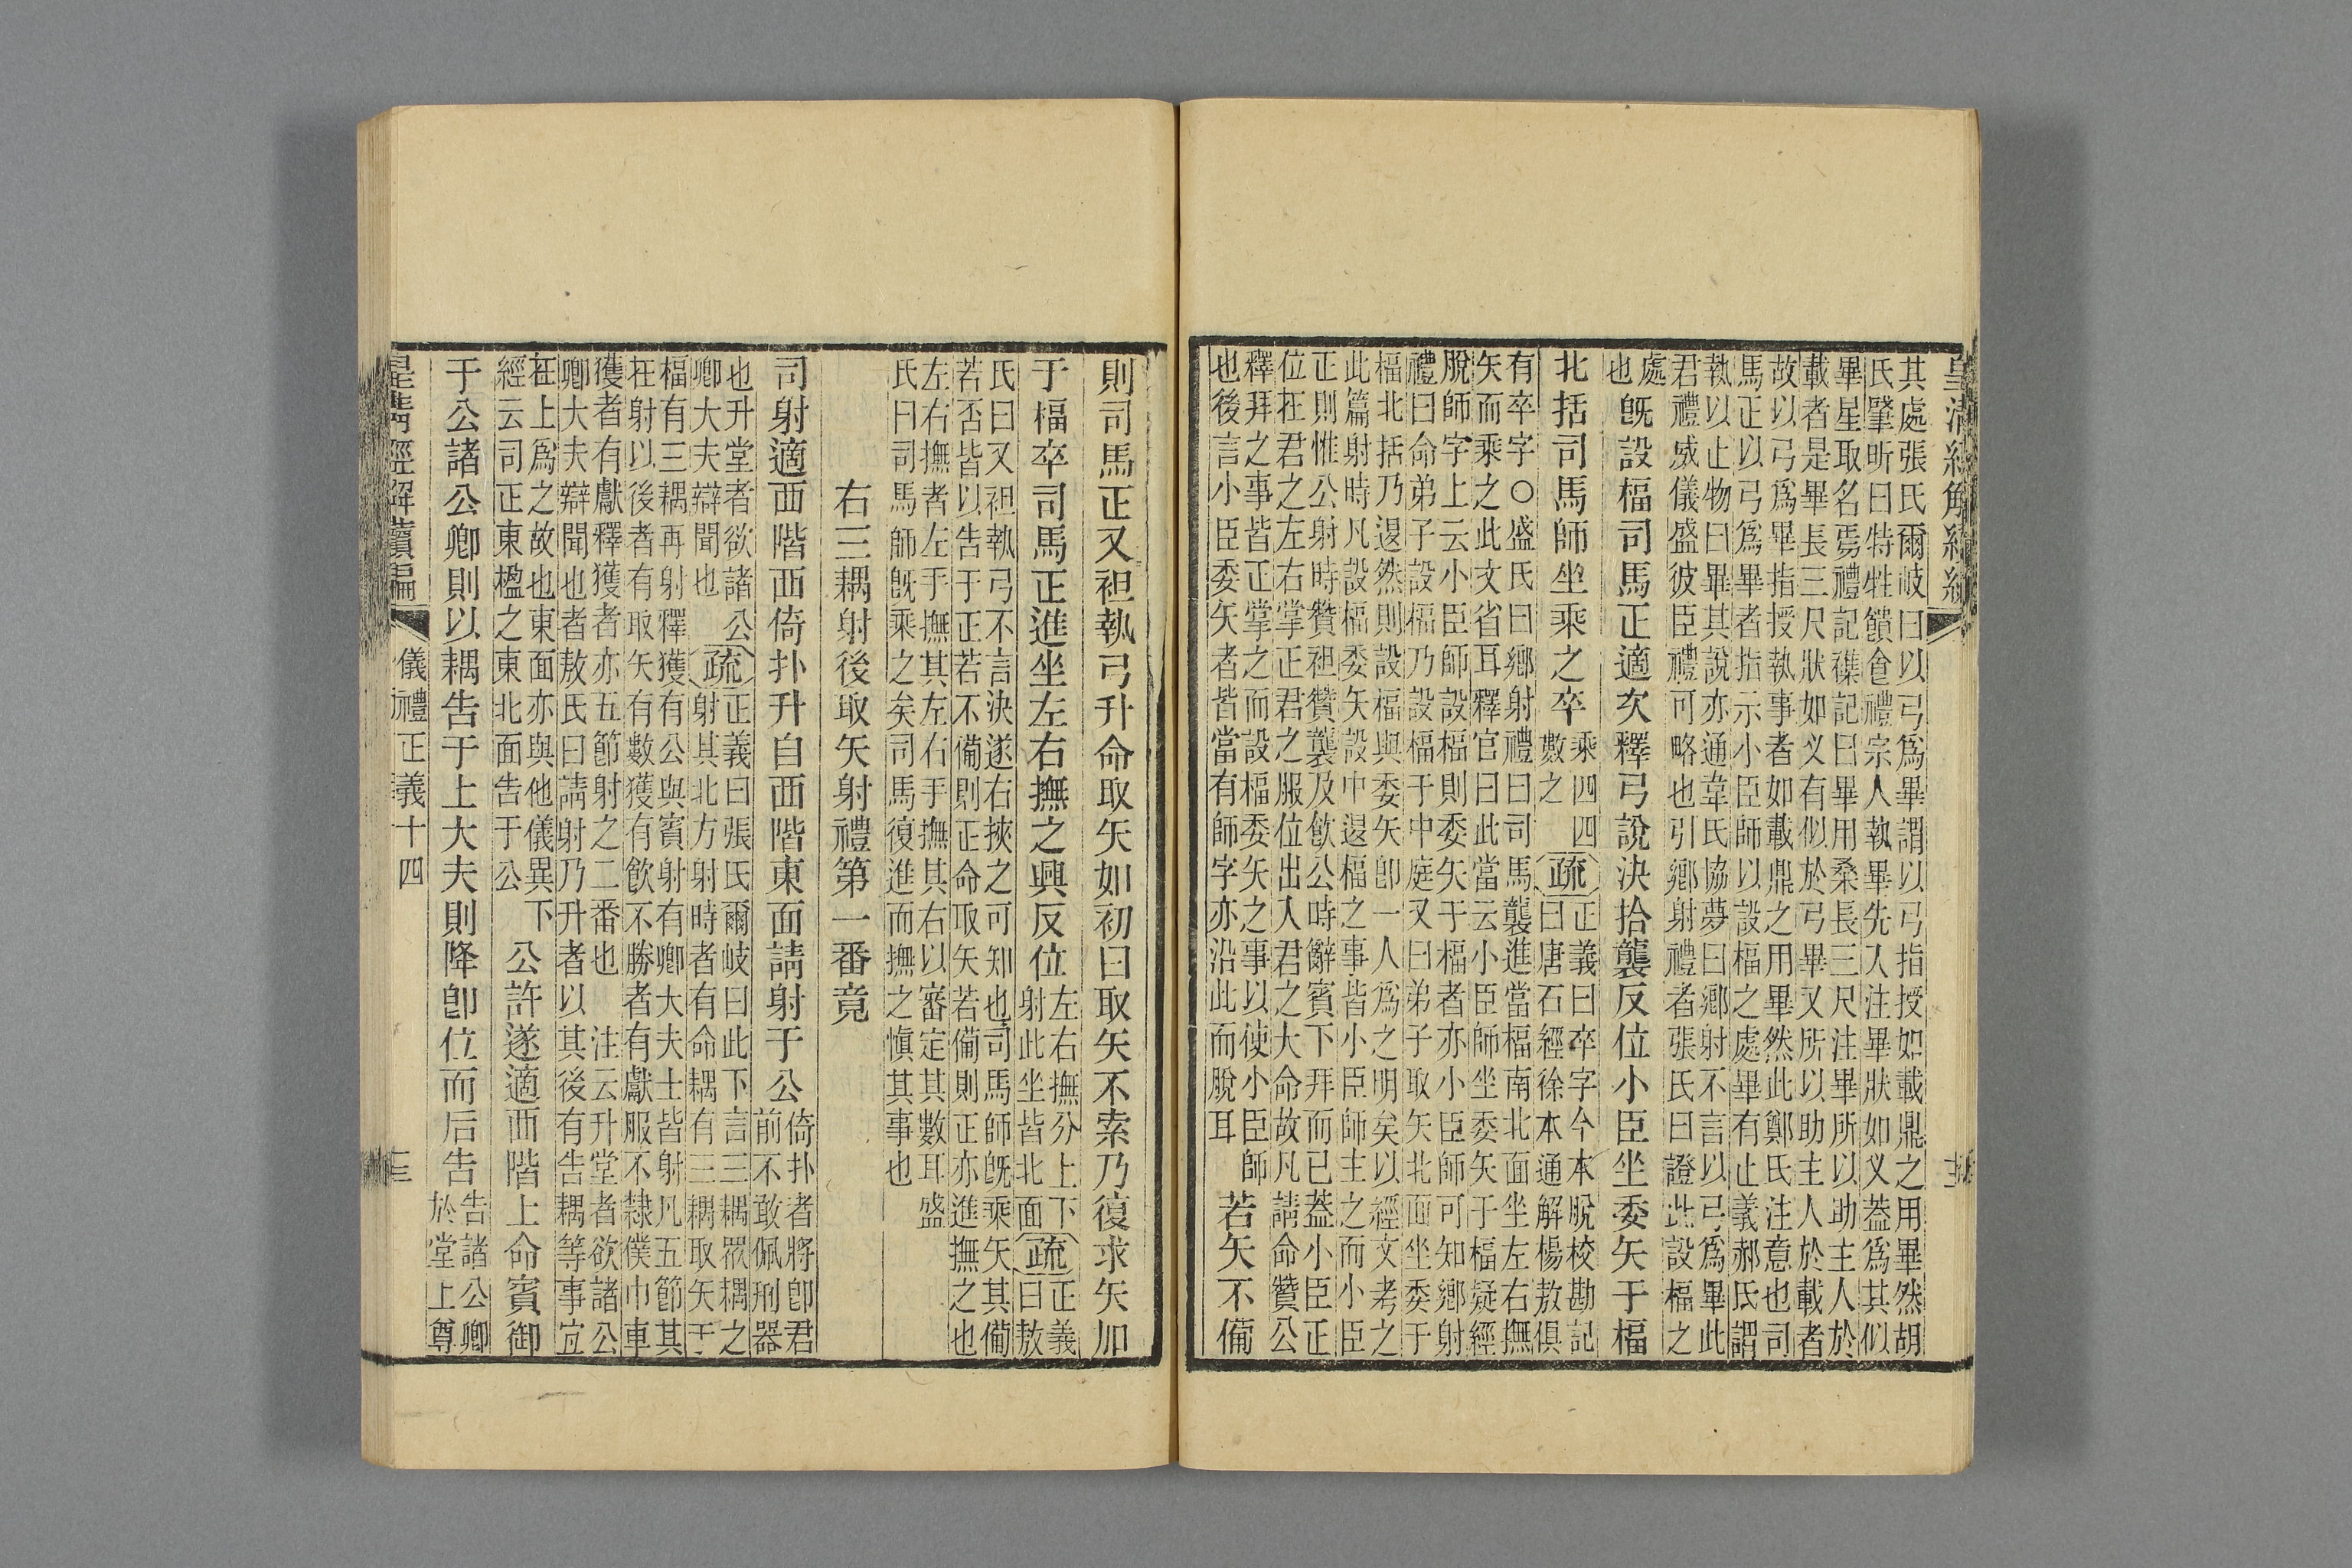 其處張氏爾岐曰以弓爲畢謂以弓指授如載鼎之用畢然胡
氏肇昕曰特牲饋食禮宗人執畢先入注畢狀如义葢爲其似
畢星取名焉禮記襍記曰畢用桑長三尺注畢所以助主人於
載者是畢長三尺狀如义有似於弓畢又所以助主人於載者
故以弓爲畢指授執事者如載鼎之用畢然此鄭氏注意也司
馬正以弓爲畢者指示小臣師以設楅之處畢有止義郝氏謂
執以止物曰畢其說亦通韋氏協夢曰鄉射不言以弓爲畢此
君禮威儀盛彼臣禮可略也引鄉射禮者張氏曰證此設楅之
處
也
旣設楅司馬正適次釋弓說決拾襲反位小臣坐委矢于楅
北括司馬師坐乘之卒
乘四四
數之
疏
正義曰卒字今本脫校勘記
曰唐石經徐本通解楊敖俱
有卒字○盛氏曰鄉射禮曰司馬襲進當楅南北面坐左右撫
矢而乘之此文省耳釋官曰此當云小臣師坐委矢于楅疑經
脫師字上云小臣師設楅則委矢于楅者亦小臣師可知鄉射
禮曰命弟子設楅乃設楅于中庭又曰弟子取矢北面坐委于
楅北括乃退然則設楅與委矢卽一人爲之明矣以經文考之
此篇射時凡設楅委矢設中退楅之事皆小臣師主之而小臣
正則惟公射時贊袒贊襲及飮公時辭賓下拜而已葢小臣正
位在君之左右掌正君之服位出入君之大命故凡請命贊公
釋拜之事皆正掌之而設楅委矢之事以使小臣師
也後言小臣委矢者皆當有師字亦沿此而脫耳
若矢不備
則司馬正又袒執弓升命取矢如初曰取矢不索乃復求矢加
于楅卒司馬正進坐左右撫之興反位
左右撫分上下
射此坐皆北面
疏
正義
曰敖
氏曰又袒執弓不言決遂右挾之可知也司馬師旣乘矢其備
若否皆以告于正若不備則正命取矢若備則正亦進撫之也
左右撫者左手撫其左右手撫其右以審定其數耳盛
氏曰司馬師旣乘之矣司馬復進而撫之愼其事也
右三耦射後取矢射禮第一番竟
司射適西階西倚扑升自西階東面請射于公
倚扑者將卽君
前不敢佩刑器
也升堂者欲諸公
卿大夫辯聞也
疏
正義曰張氏爾岐曰此下言三耦眾耦之
射其北方射時者有命耦有三耦取矢于
楅有三耦再射釋獲有公與賓射有卿大夫士皆射凡五節其
在射以後者有取矢有數獲有飮不勝者有獻服不隸僕巾車
獲者有獻釋獲者亦五節射之二番也　注云升堂者欲諸公
卿大夫辯聞也者敖氏曰請射乃升者以其後有告耦等事宜
在上爲之故也東面亦與他儀異下
經云司正東楹之東北面告于公
公許遂適西階上命賓御
于公諸公卿則以耦告于上大夫則降卽位而后告
告諸公卿
於堂上尊
皇淸經解續編
儀禮正義十四
三